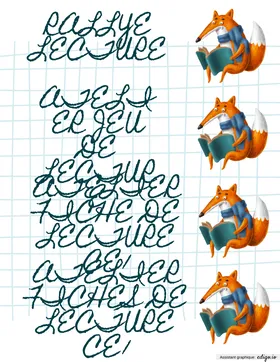 RALLYE
LECTURE
ATELI
ER JEU
DE
LECTUR
ATELIER
FICHE DE
LECTURE
CE1
ATELIER
FICHES DE
LECTURE
CE1
Assistant graphique: edigo.ia